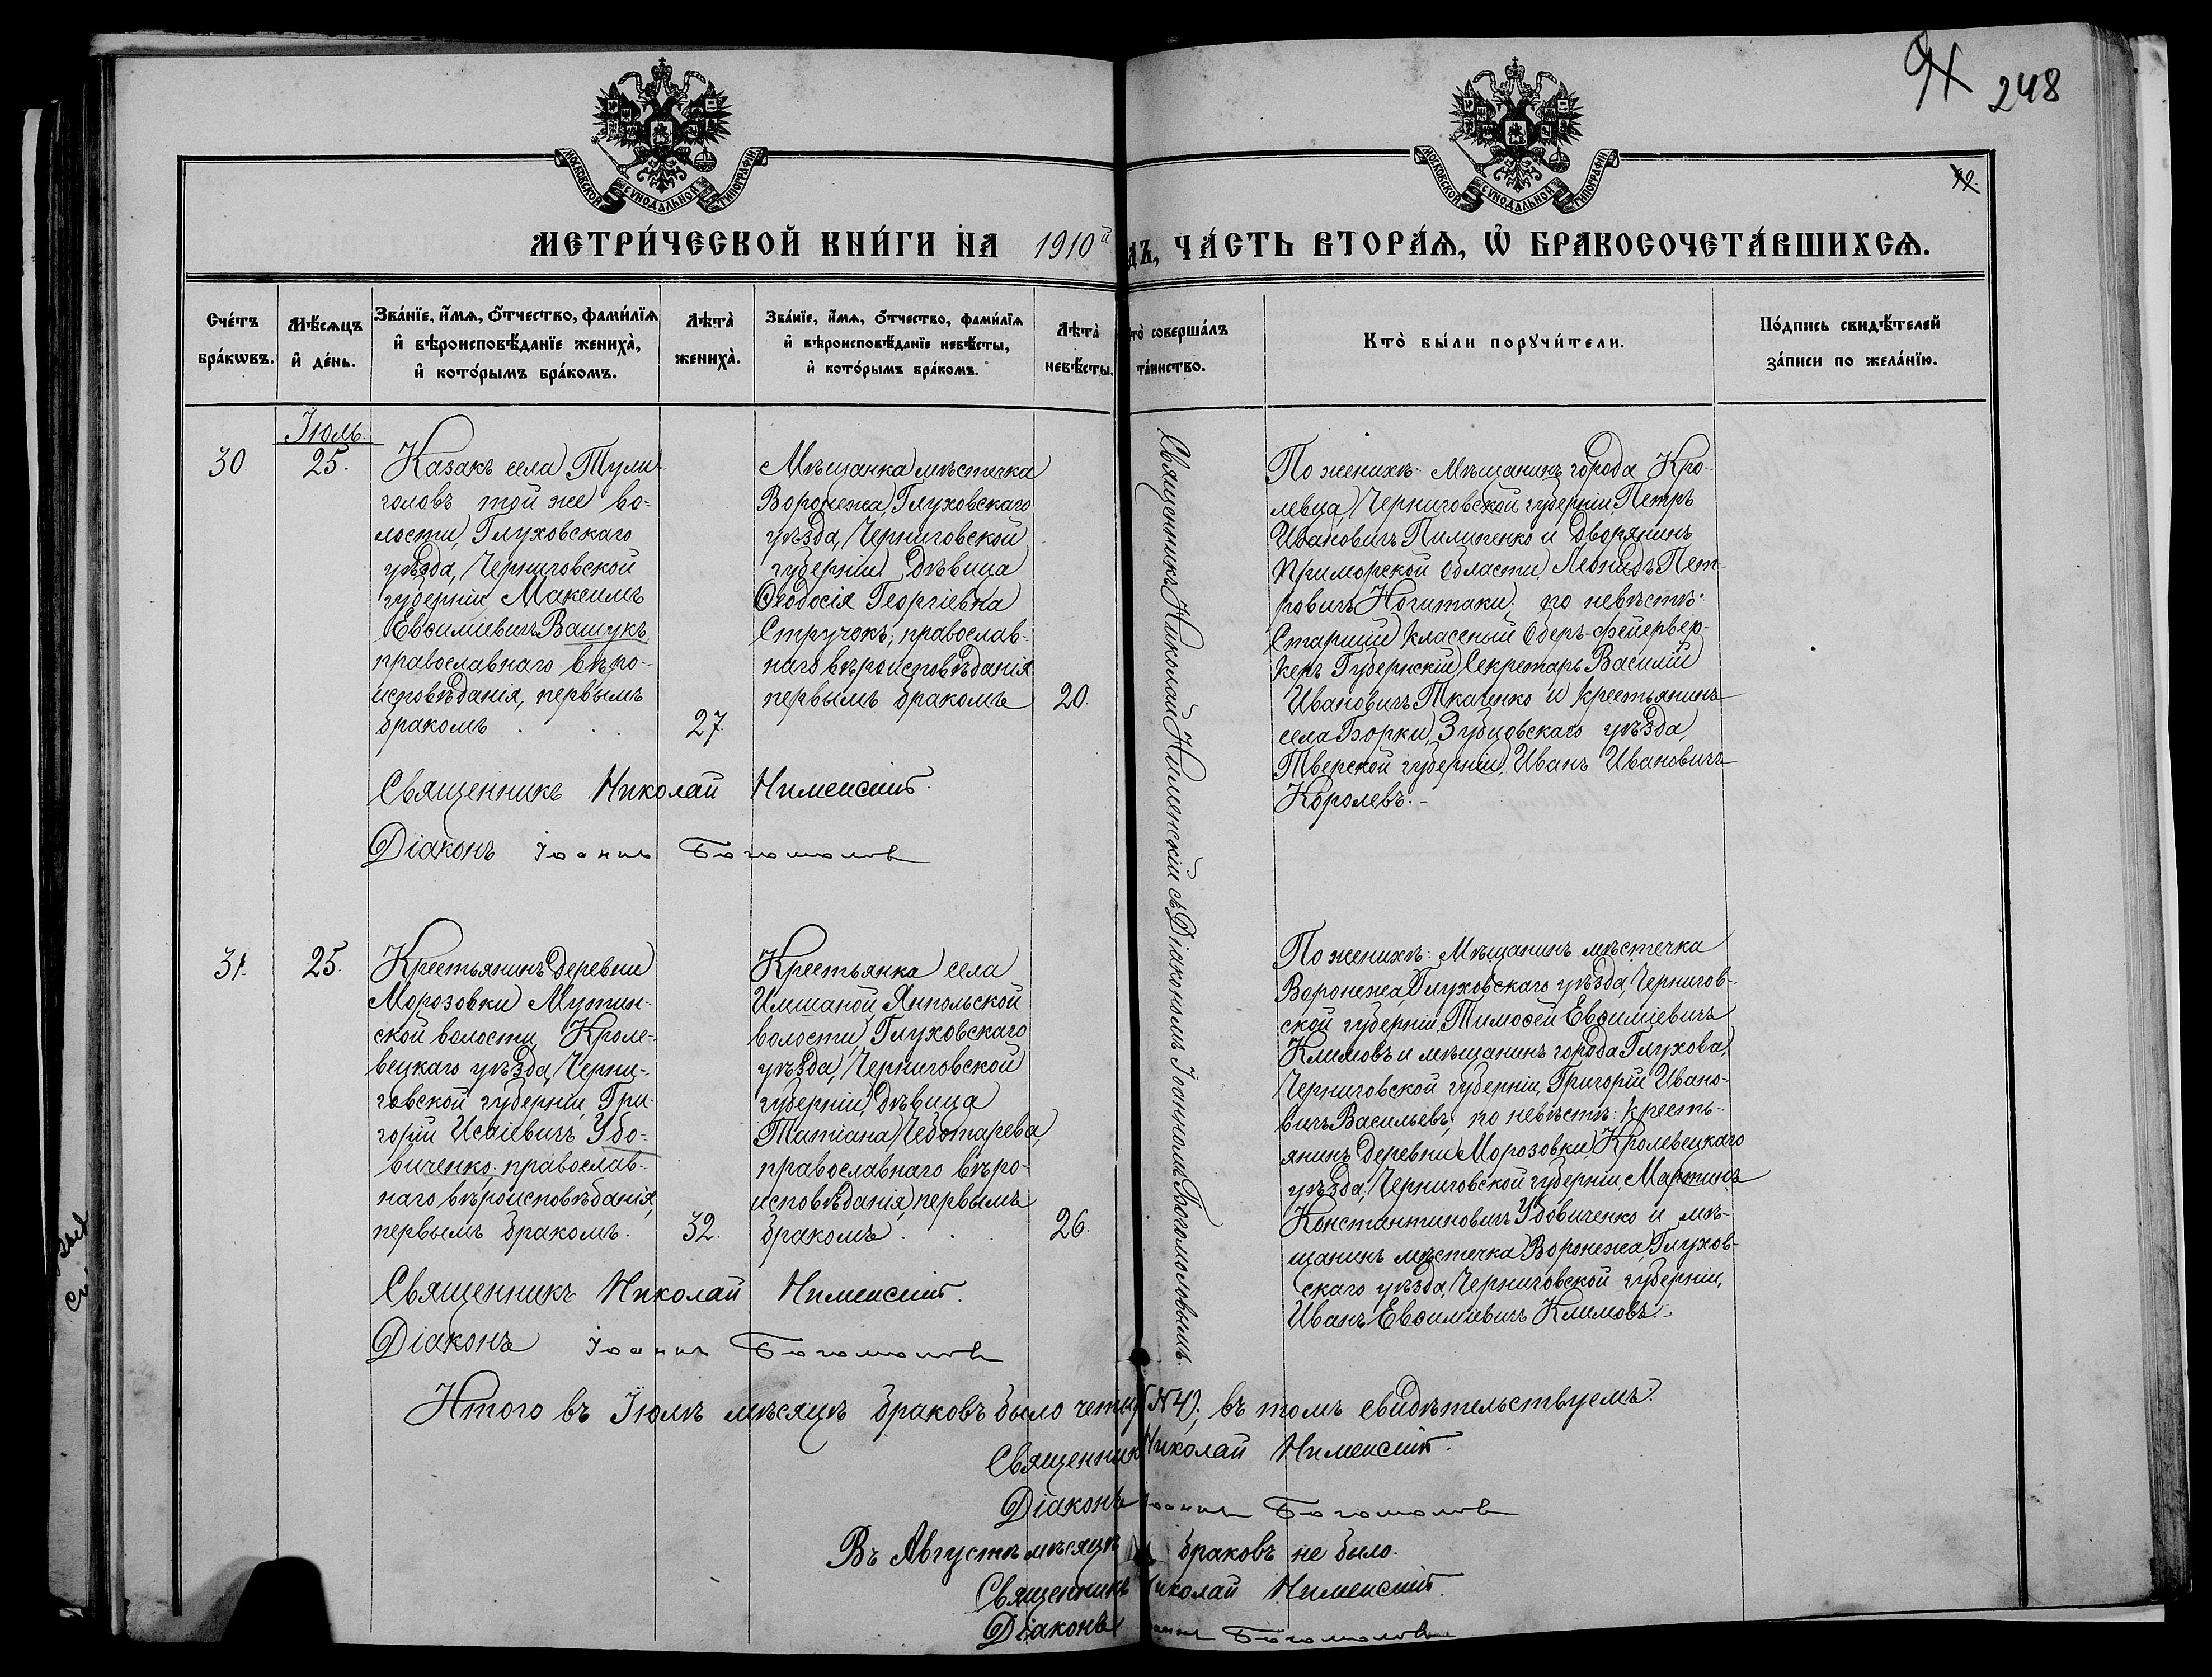 91 248
МОСКОВСКОЙ СУНОДАЛЬНОЙ ТИПОГРАФІИ
МОСКОВСКОЙ СУНОДАЛЬНОЙ ТИПОГРАФІИ
42.
МЕТРИ́ЧЕСКОЙ КНИ́ГИ НА 1910й
дъ, ЧА́СТЬ ВТОРА́Ѧ, Ѡ БРАКОСОЧЕТА́ВШИХСѦ.
Сче́тъ
бра́кѡвъ.
Мѣ́сѧцъ
и҆ де́нь.
Зва́нїе, и҆́мѧ, ѻ҆́тчество, фами́лїѧ
и҆ вѣроисповѣ́данїе жениха̀,
и҆ кото́рымъ бра́комъ.
Лѣта̀
жениха̀.
Зва́нїе, и҆́мѧ, ѻ҆́тчество, фами́лїѧ
и҆ вѣроисповѣ́данїе невѣ́сты,
и҆ кото́рымъ бра́комъ.
Лѣта̀
невѣ́сты.
то̀ соверша́лъ
та́инство.
Кто̀ бы́ли порꙋчи́тели.
По́дпись свидѣ́телей
за́писи по жела́нїю.
Іюль.
30
25.
Казакъ села Тули-
головъ той же во-
лости, Глуховскаго
уѣзда, Черниговской
губерніи Максимъ
Евѳиміевичъ Ващукъ
православнаго вѣро-
исповѣданія, первымъ
бракомъ . .
27.
Мѣщанка мѣстечка
Воронежа, Глуховскаго
уѣзда, Черниговской
губерніи дѣвица
Ѳеодосія Георгіевна
Стручокъ; православ-
наго вѣроисповѣданія
первымъ бракомъ
20.
Священникъ Николай Нименскій.
Діаконъ Іоаннъ Богомолов
Священникъ Николай Нименскій съ Діакономъ Іоанномъ Богомоловымъ.
По женихѣ: Мѣщанинъ города Кро-
левца, Черниговской губерніи, Петръ
Ивановичъ Пилипенко и Дворянинъ
Приморской области, Леонидъ Пет-
ровичъ Ногитаки; по невѣстѣ:
Старшій класный Оберъ-фейервер-
керъ Губернскій Секретарь Василій
Ивановичъ Ткаченко и крестьянинъ
села Борки, Зубцовскаго уѣзда,
Тверской губерніи, Иванъ Ивановичъ
Королевъ.-
31.
25.
Крестьянинъ деревни
Морозовки Мутин-
ской волости, Кроле-
вецкаго уѣзда, Черни-
говской губерніи Гри-
горій Исаіевичъ Удо-
виченко; православ-
наго вѣроисповѣданія,
первымъ бракомъ.
32.
Крестьянка села
Имшаной Янпольской
волости, Глуховскаго
уѣзда, Черниговской
губерніи, дѣвица
Татіана Чеботарева
православнаго вѣро-
исповѣданія, первымъ
бракомъ . . .
26.
Священникъ Николай Нименскій.
Діаконъ Іоаннъ Богомолов
По женихѣ: Мѣщанинъ мѣстечка
Воронежа, Глуховскаго уѣзда, Чернигов-
ской губерніи, Тимоѳей Евѳиміевичъ
Климовъ и мѣщанинъ города Глухова,
Черниговской губерніи, Григорій Ивано-
вичъ Васильевъ; по невѣстѣ: кресть-
янинъ деревни Морозовки, Кролевецкаго
уѣзда, Черниговской губерніи, Мартинъ
Константиновичъ Удовиченко и мѣ-
щанинъ мѣстечка Воронежа, Глухов-
скаго уѣзда, Черниговской губерніи,
Иванъ Евѳиміевичъ Климовъ.-
Итого въ Іюлѣ мѣсяцѣ браковъ было четыр (№4); въ томъ свидѣтельствуемъ:
Священник Николай Нименскій.
Діаконъ Іоаннъ Богомолов
Въ Августѣ мѣсяцѣ браковъ не было.
Священникъ Николай Нименскій.
Діаконъ Іоаннъ Богомолов